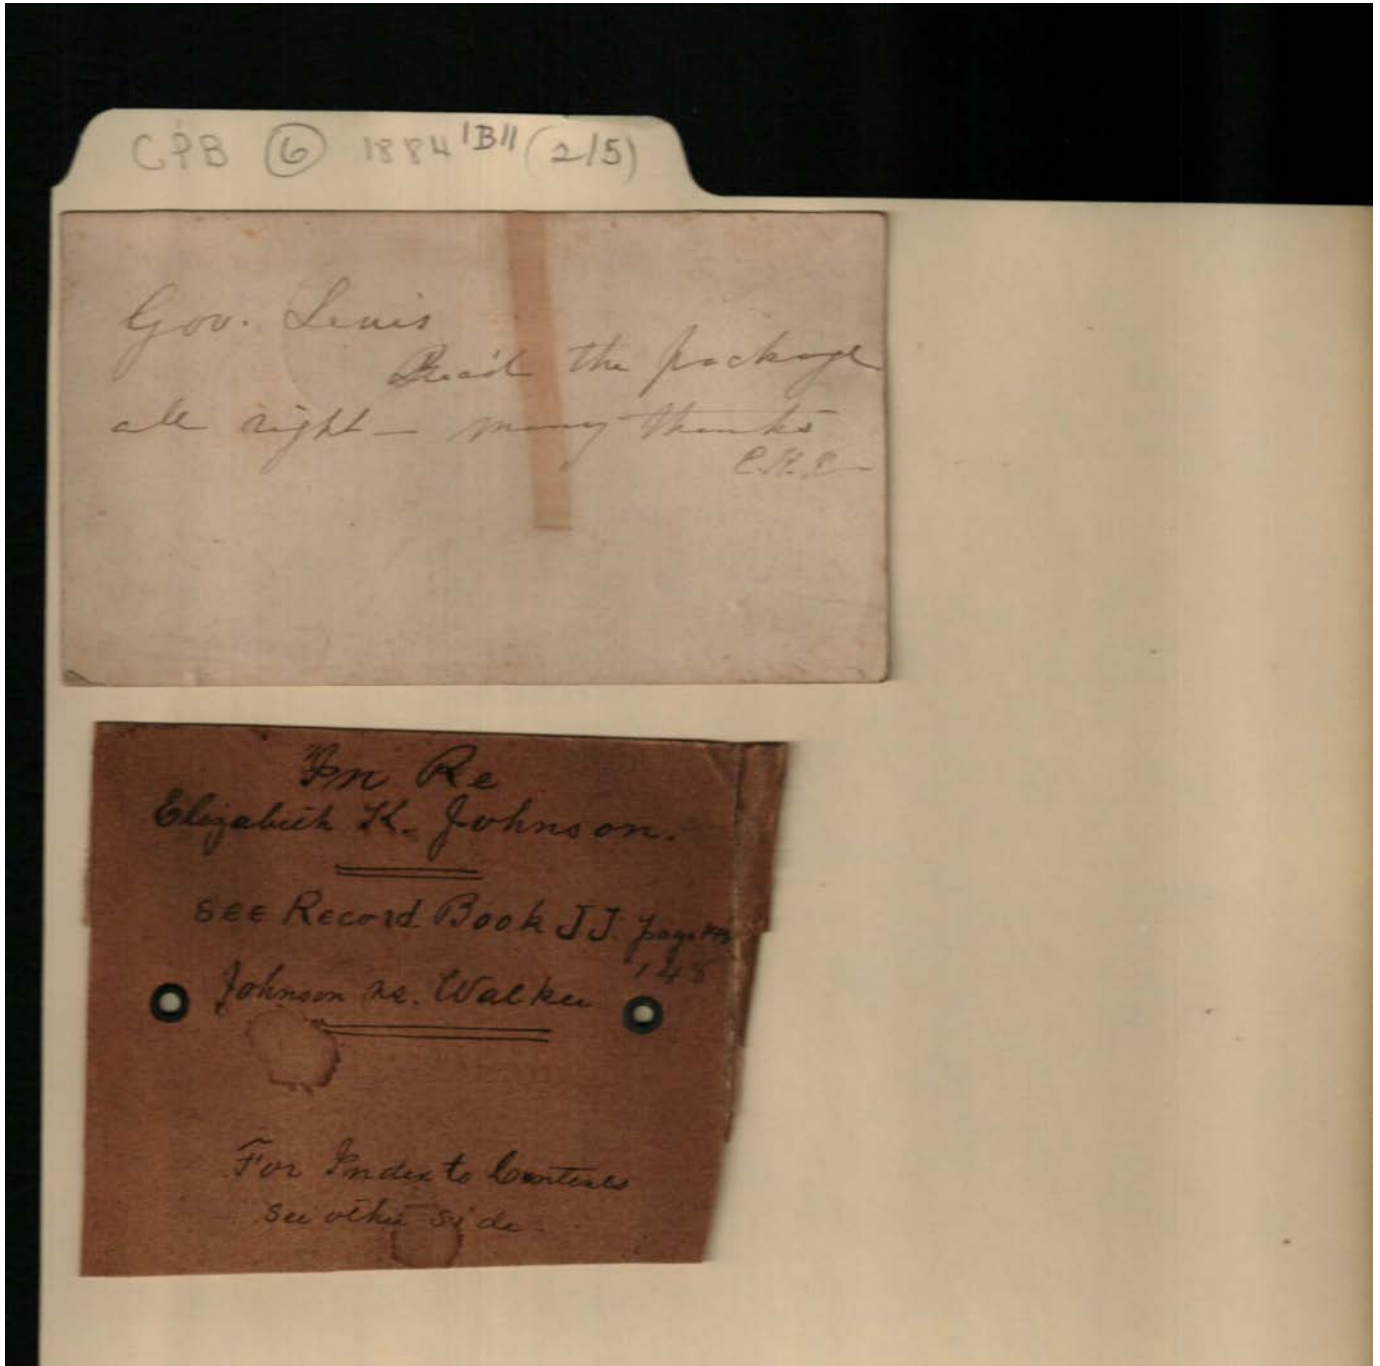 CPB 6 1884 "B" (2/5)
Gov. Lewis
Rec'd the package
all right – many thanks
In Re
Elizabeth K. Johnson.
See Record Book JJ. page
148
Johnson vs. Walker
For Index to Contents
see other side.